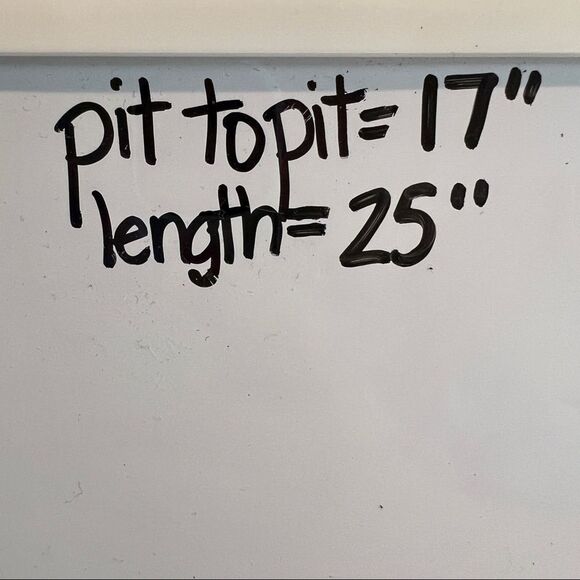 pit to pit= 17"
length= 25"